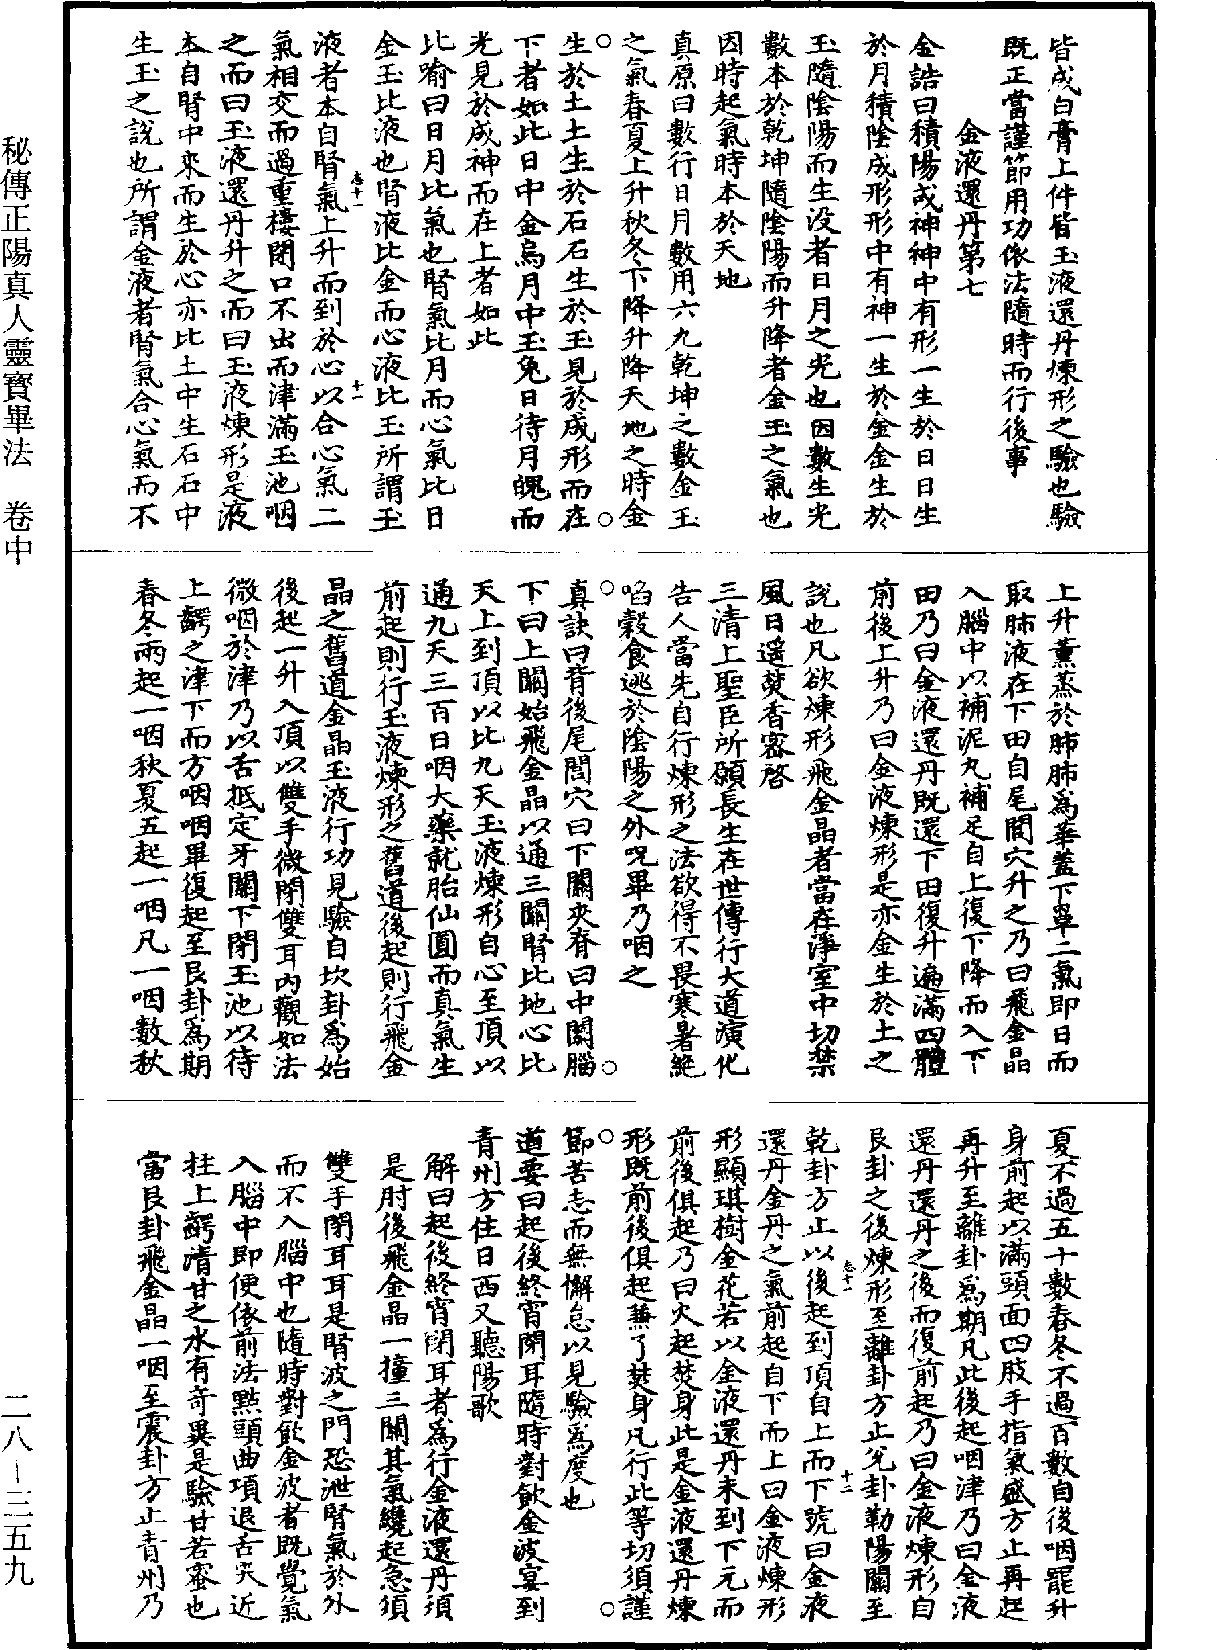 皆成白膏上件皆玉液還丹煉形之驗也驗
既正當謹節用功依法隨時而行後事
金液還丹第七
金誥曰積陽成神神中有形一生於日日生
於月積陰成形形中有神一生於金金生於
玉隨陰陽而生没者日月之光也因數生光
數本於乾坤隨陰陽而升降者金玉之氣也
因時起氣時本於天地
真原曰數行日月數用六九乾坤之數金玉
之氣春夏上升秋冬下降升降天地之時金
生於土土生於石石生於玉見於成形而在
下者如此日中金烏月中玉兔日待月魄而
光見於成神而在上者如此
比喻曰日月比氣也腎氣比月而心氣比日
金玉比液也腎液比金而心液比玉所謂玉
液者本自腎氣上升而到於心以合心氣二
氣相交而過重樓閉口不出而津滿玉池咽
之而曰玉液還丹升之而曰玉液煉形是液
本自腎中來而生於心亦比土中生石石中
生玉之說也所謂金液者腎氣合心氣而不
上升薰蒸於肺肺為華蓋下罩二氣即日而
取肺液在下田自尾閭穴升之乃曰飛金晶
入腦中以補泥丸補足自上復下降而入下
田乃曰金液還丹既還下田復升遍滿四體
前後上升乃曰金液煉形是亦金生於土之
說也凡欲煉形飛金晶者當在淨室中切禁
風日遥焚香密啓
三清上聖臣所願長生在世傳行大道演化
告人當先自行煉形之法欲得不畏寒暑絶
啗穀食逃於陰陽之外呪畢乃咽之
真訣曰背後尾閭穴曰下關夾脊曰中關腦
下曰上關始飛金晶以通三關腎比地心比
天上到頂以比九天玉液煉形自心至頂以
通九天三百日咽大藥就胎仙圓而真氣生
前起則行玉液煉形之舊道後起則行飛金
晶之舊道金晶玉液行功見驗自坎卦為始
後起一升入頂以雙手微閉雙耳內觀如法
微咽於津乃以舌抵定牙關下閉玉池以待
上齶之津下而方咽咽畢復起至艮卦為期
春冬兩起一咽秋夏五起一咽凡一咽數秋
夏不過五十數春冬不過百數自後咽罷升
身前起以滿頭面四肢手指氣盛方止再起
再升至離卦為期凡此後起咽津乃曰金液
還丹還丹之後而復前起乃曰金液煉形自
艮卦之後煉形至離卦方止兌卦勒陽關至
乾卦方止以後起到頂自上而下號曰金液
還丹金丹之氣前起自下而上曰金液煉形
形顯琪樹金花若以金液還丹未到下元而
前後俱起乃曰火起焚身此是金液還丹煉
形既前後俱起兼了焚身凡行此等切須謹
節苦志而無懈怠以見驗為度也
道要曰起後終宵閉耳隨時對飲金波宴到
青州方住日西又聽陽歌
解曰起後終宵閉耳者為行金液還丹須
是肘後飛金晶一撞三關其氣纔起急須
雙手閉耳耳是腎波之門恐泄腎氣於外
而不入腦中也隨時對飲金波者既覺氣
入腦中即便依前法點頭曲項退舌尖近
拄上齶清甘之水有奇異是驗甘若蜜也
當艮卦飛金晶一咽至震卦方止青州乃
秘傳正陽真人靈寶畢法　卷中
二八—三五九